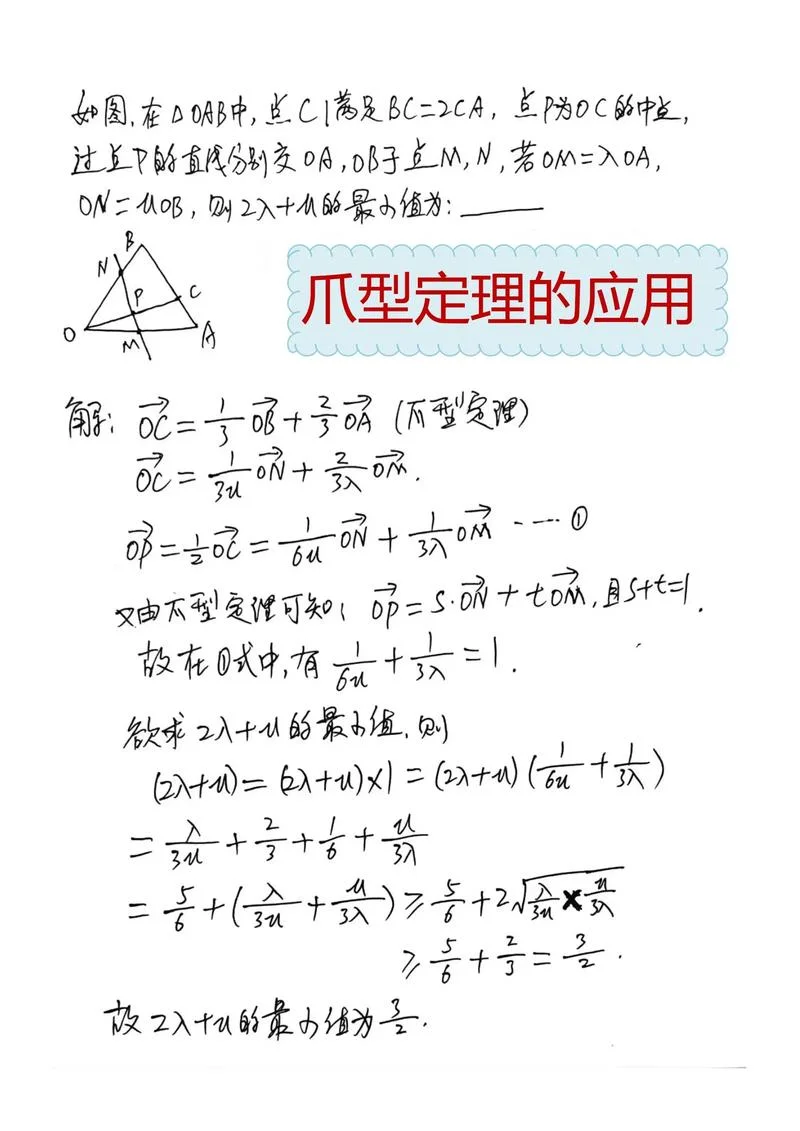 如图,在△OAB中,点C满足BC=2CA,点P为OC的中点,
过点P的直线分别交OA,OB于点M,N,若OM=λOA,
ON=μOB,则2λ+μ的最小值为:______
B
N
P
C
O
M
A
爪型定理的应用
解: \vec{OC}=\frac{1}{3}\vec{OB}+\frac{2}{3}\vec{OA} (爪型定理)
\vec{OC}=\frac{1}{3μ}\vec{ON}+\frac{2}{3λ}\vec{OM}.
\vec{OP}=\frac{1}{2}\vec{OC}=\frac{1}{6μ}\vec{ON}+\frac{1}{3λ}\vec{OM} ----①
又由爪型定理可知: \vec{OP}=S·\vec{ON}+t\vec{OM},且S+t=1.
故在①式中,有\frac{1}{6μ}+\frac{1}{3λ}=1.
欲求2λ+μ的最小值,则
(2λ+μ)=(2λ+μ)×1=(2λ+μ)(\frac{1}{6μ}+\frac{1}{3λ})
=\frac{λ}{3μ}+\frac{2}{3}+\frac{1}{6}+\frac{μ}{3λ}
=\frac{5}{6}+(\frac{λ}{3μ}+\frac{μ}{3λ})≥\frac{5}{6}+2\sqrt{\frac{λ}{3μ}×\frac{μ}{3λ}}
≥\frac{5}{6}+\frac{2}{3}=\frac{3}{2}.
故2λ+μ的最小值为\frac{3}{2}.